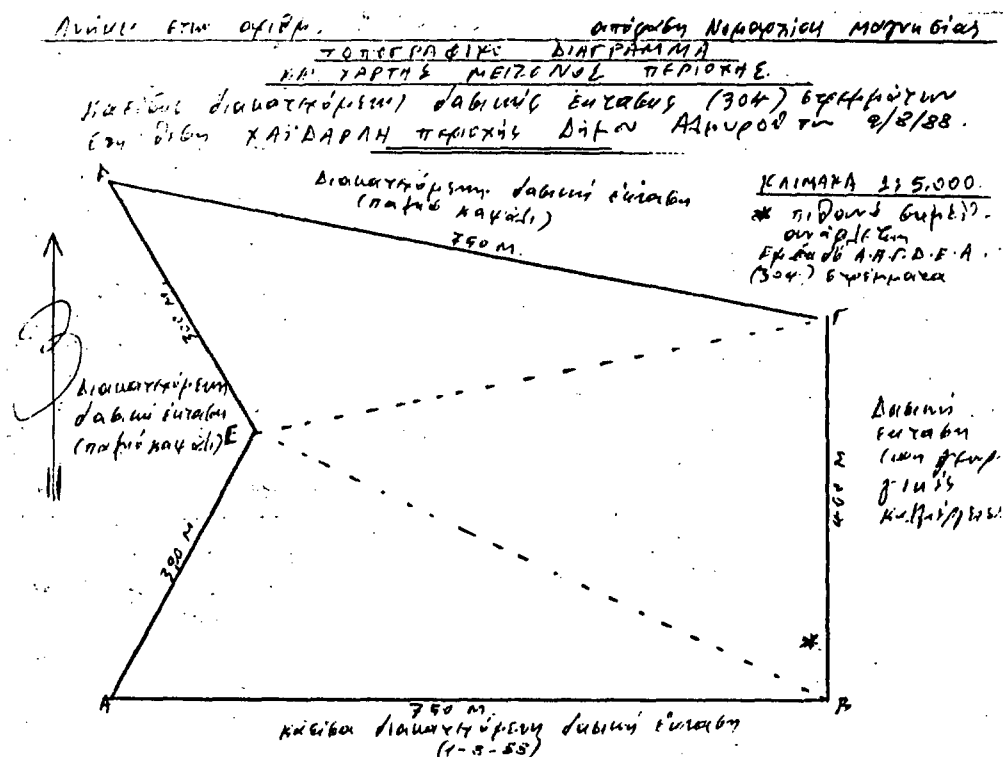 Ανήκει στην αριθμ. απόφαση Νομαρχίας Μαγνησίας
ΤΟΠΟΓΡΑΦΙΚΟ ΔΙΑΓΡΑΜΜΑ
ΚΑΙ ΧΑΡΤΗΣ ΜΕΙΖΟΝΟΣ ΠΕΡΙΟΧΗΣ.
διακατεχόμενης δασικής έκτασης (304) στρεμμάτων
στη θέση ΧΑΪΔΑΡΛΗ περιοχής Δήμου Αλμυρού την 9/8/88.
Διακατεχόμενη δασική έκταση
(παληό καψάλι)
750 Μ.
ΚΛΙΜΑΚΑ 1:5.000.
* πιθανό σημείο
Εμβαδό Α.Β.Γ.Δ.Ε.Α.
(304) στρέμματα
Γ
300 Μ.
Β
Διακατεχόμενη
δασική έκταση
(παληό καψάλι)
Ε
Δασική
έκταση
400 Μ
300 Μ.
*
Α
Β
750 Μ.
διακατεχόμενη δασική έκταση